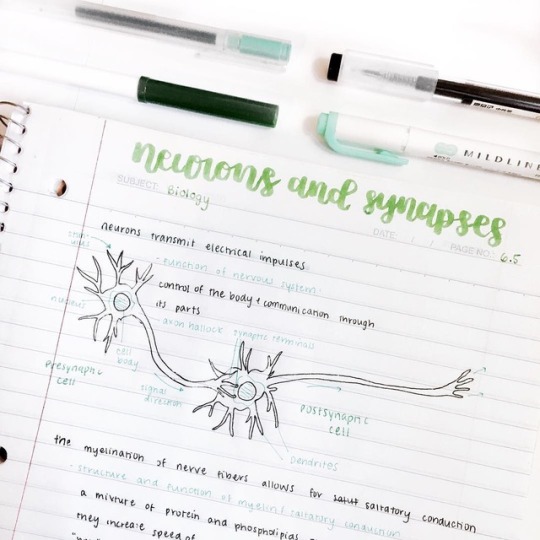 MILDLINER
neurons and synapses
SUBJECT: Biology
DATE / / PAGE NO.: 6.5
neurons transmit electrical impulses
- function of nervous system:
control of the body + communication through
its parts
nucleus
axon hallock
synaptic terminals
cell
body
presynaptic
cell
signal
direction
postsynaptic
cell
dendrites
the myelination of nerve fibers allows for salut saltatory conduction
- structure and function of myelin & saltatory conduction
a mixture of protein and phospholipids
they increase speed of